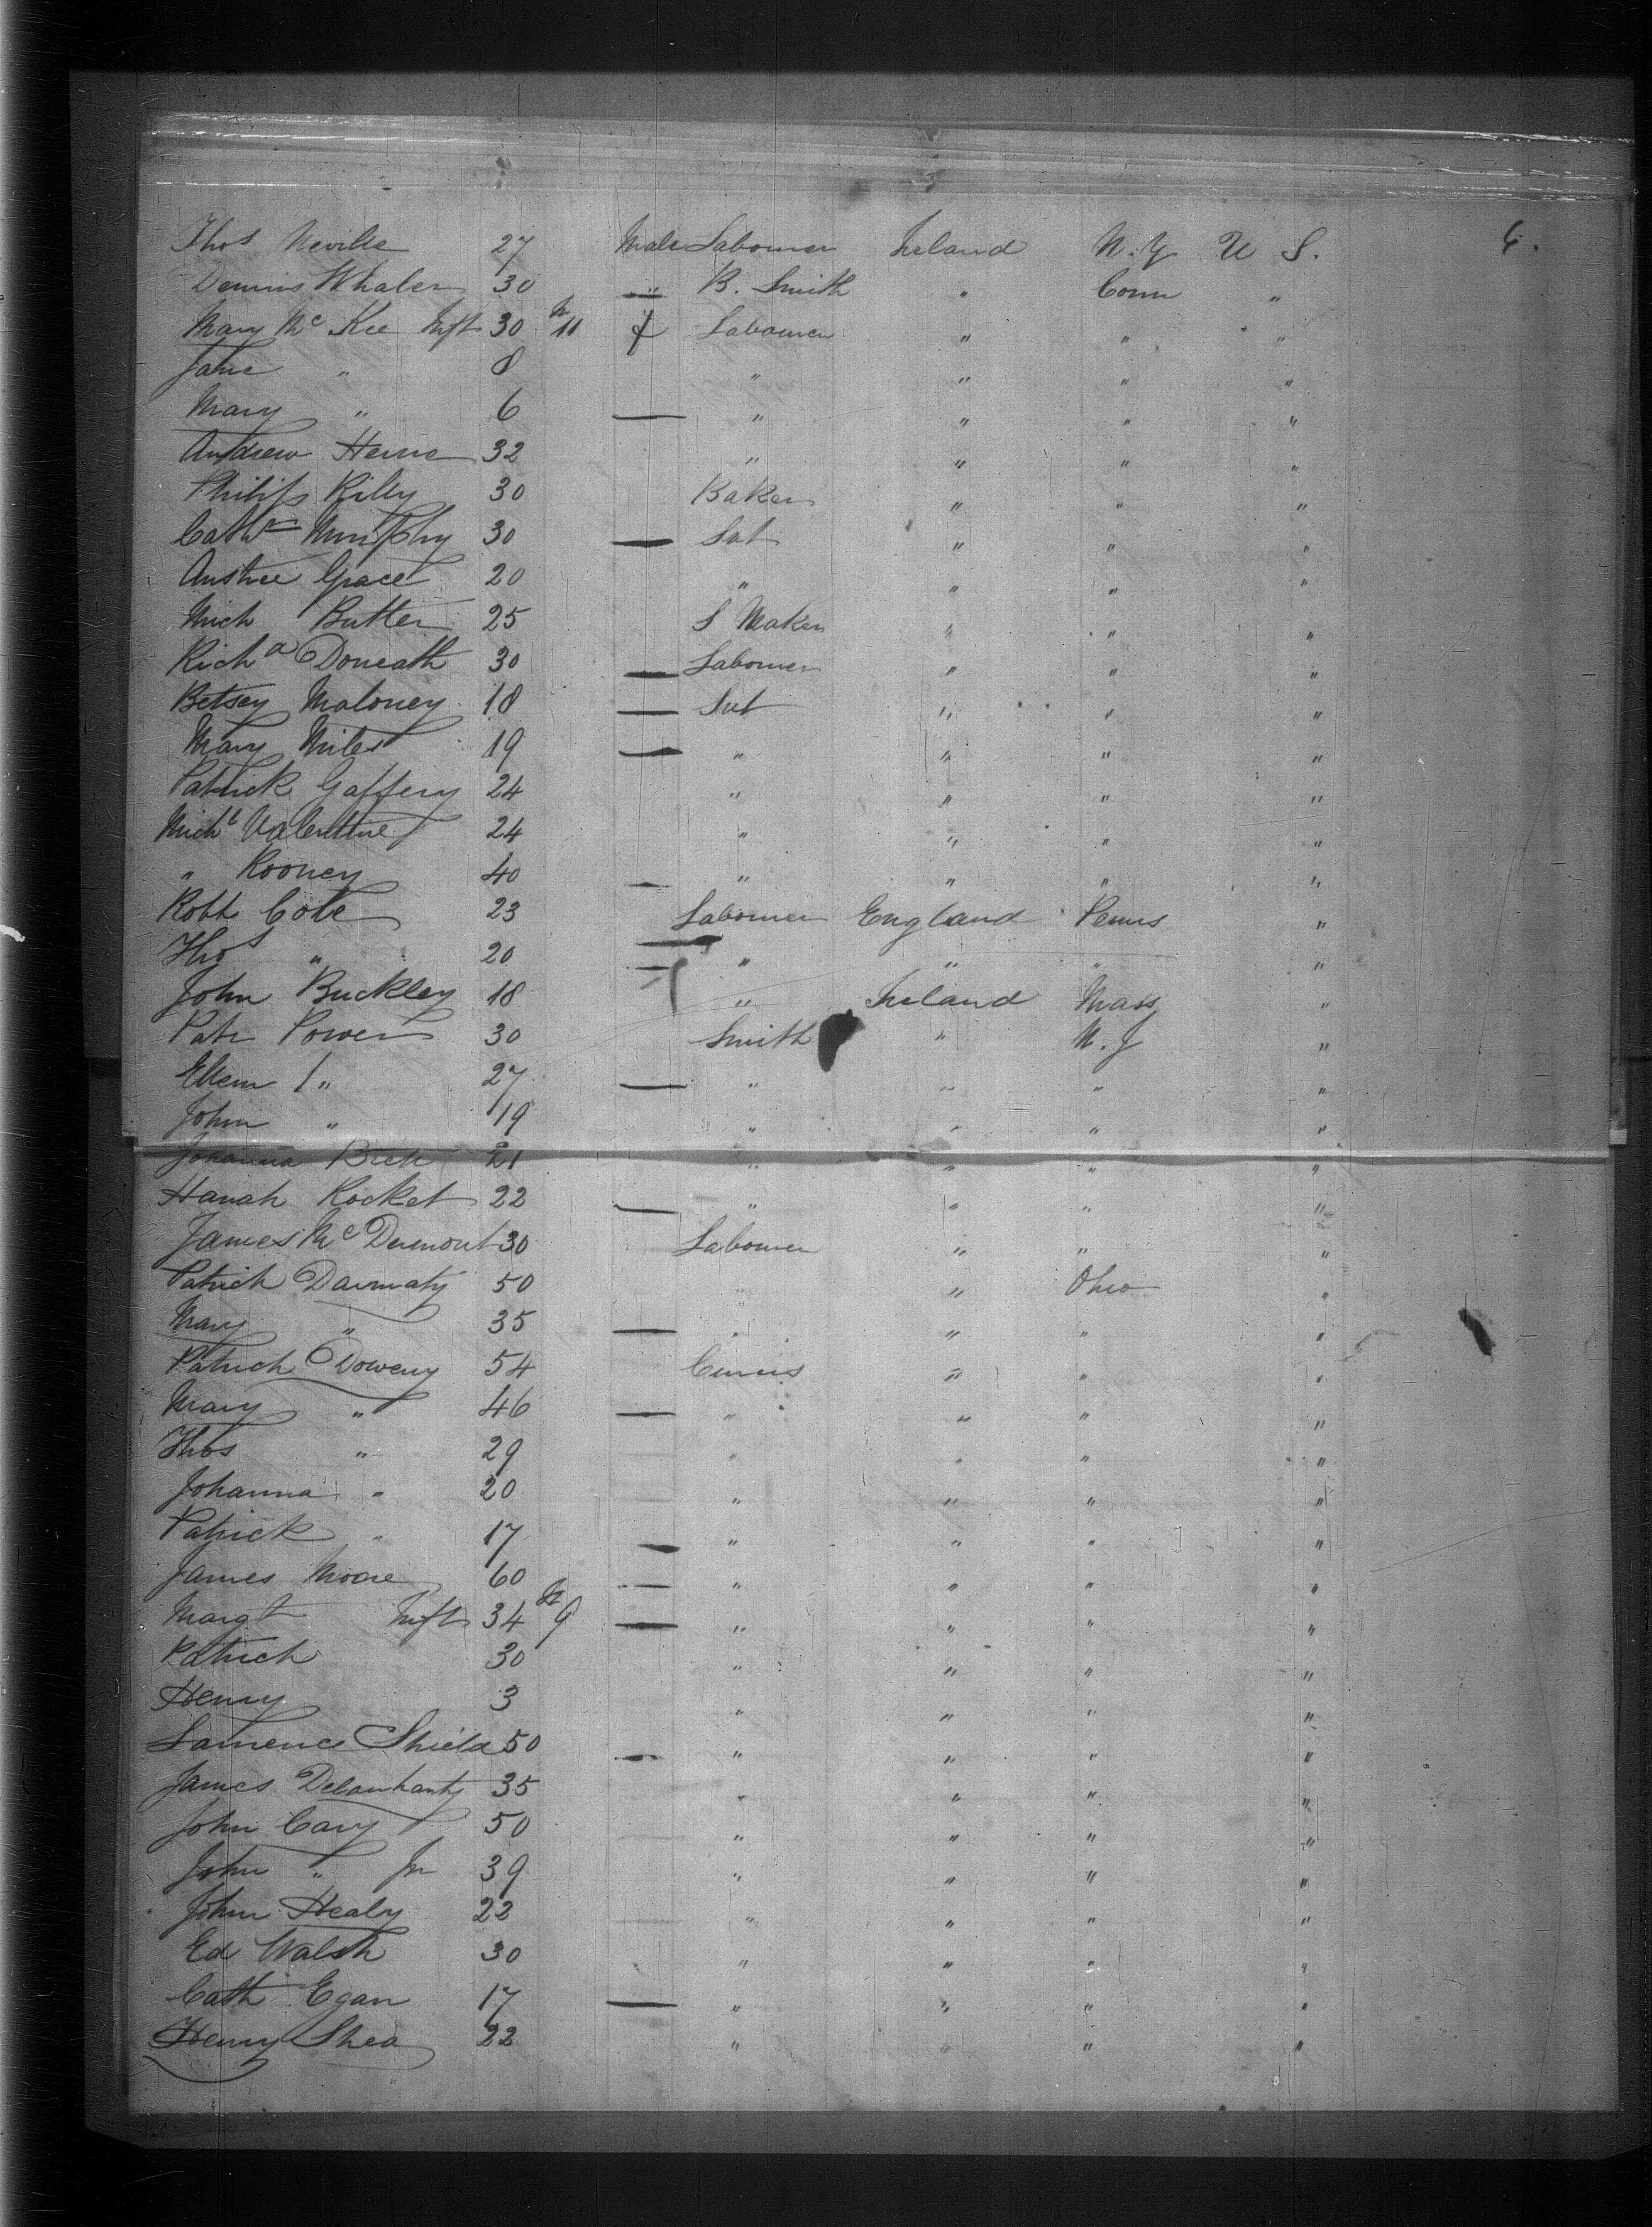 Thos Neville 27 Male Labourer Ireland N.Y U S. 6.
Dennis Whalen 30 " B. Smith " Conn "
Mary Mc Kee Inft 30 M 11 f Labourer " " "
Jane " 8 " " " "
Mary " 6 — " " " "
Andrew Herne 32 " " " "
Philip Rilly 30 Baker " " "
Cathe Murphy 30 — Sut " " "
Anstice Grace 20 " " " "
Mich Butler 25 S Maker " " "
Richd Doneath 30 — Labourer " " "
Betsey Maloney 18 — Sut " " "
Mary Miles 19 — " " " "
Patrick Gaffery 24 " " " "
Michl Valentine 24 " " " "
" Rooney 40 — " " " "
Robt Cole 23 Labourer England Penns "
Thos " 20 — " " " "
John Buckley 18 " Ireland Mass "
Patr Power 30 Smith " N. J "
Ellen " 27 — " " " "
John " 19 " " " "
Johanna 21 " " " "
Hanah Rocket 22 — " " " "
James Mc Dermont 30 Labourer " " "
Patrick Darmaty 50 " " Ohio "
Mary " 35 — " " " "
Patrick Doweny 54 " " "
Mary " 46 — " " " "
Thos " 29 " " " "
Johanna " 20 " " " "
Patrick " 17 — " " " "
James Moore 60 — " " " "
Margt Inft 34 9 — " " " "
Patrick 30 " " " "
Henry 3 " " " "
Lawrence Shield 50 — " " " "
James Delanhanty 35 " " " "
John Cary 50 " " " "
John " Jn 39 " " " "
John Healy 22 " " " "
Ed Walsh 30 " " " "
Cath Egan 17 — " " " "
Henry Shea 22 " " " "